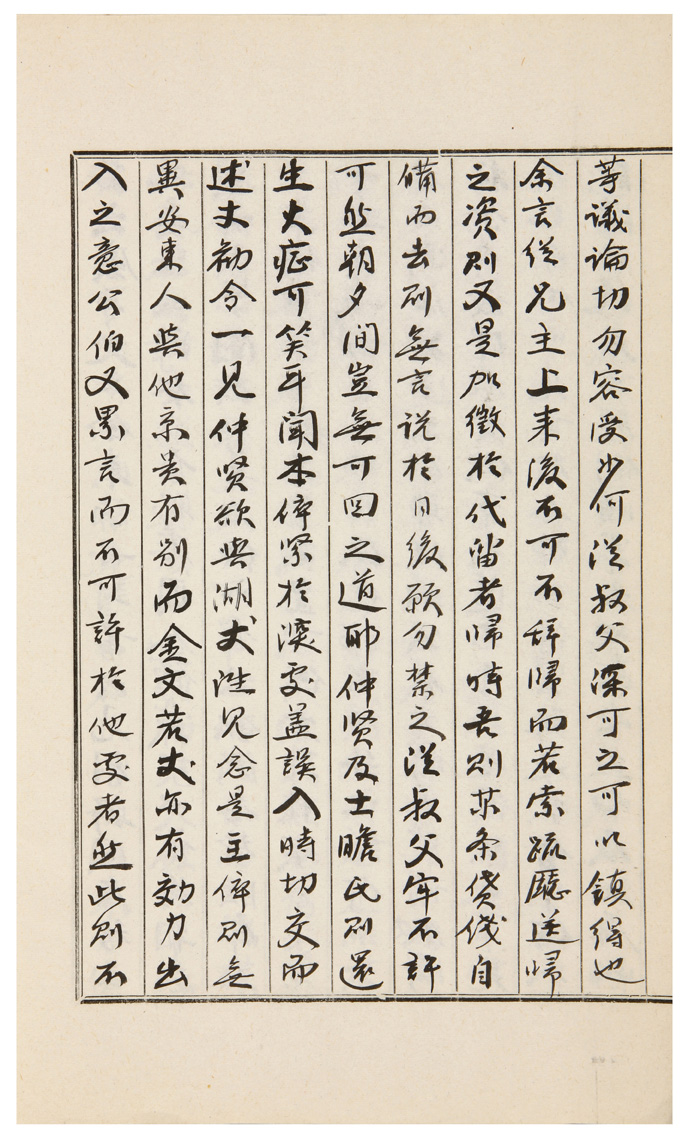 等議論切勿容受少何從叔父深可之可以鎮得也
余言從兄主上來後不可不辞歸而若索疏廳送歸
之資則又是加徵於代留者歸時吾則某条貸錢自
備而去則無言說於日後願勿禁之從叔父牢不許
可然朝夕間豈無可回之道耶仲賢及士瞻氏則還
生火症可笑耳聞本倅緊於漢處盖誤入時切交而
述丈勸令一見仲賢欲與湖丈往見念是主倅則無
異安東人與他京貴有別而金文若丈亦有効力出
入之意公伯又累言而不可許於他處者然此則不